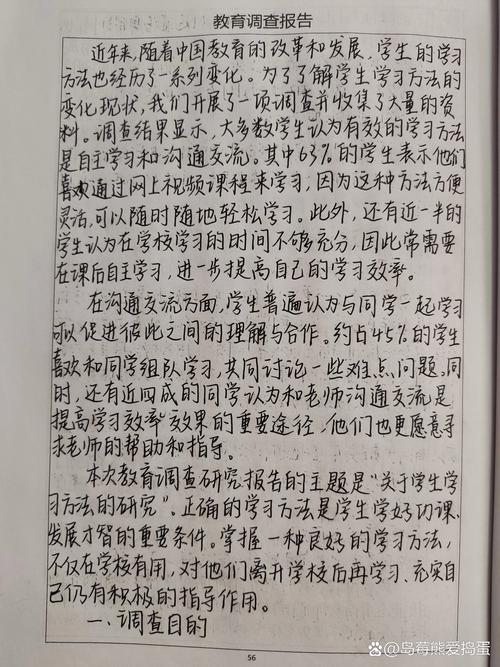 教育调查报告
近年来,随着中国教育的改革和发展,学生的学习
方法也经历了一系列变化。为了了解学生学习方法的
变化现状,我们开展了一项调查并收集了大量的资
料。调查结果显示,大多数学生认为有效的学习方法
是自主学习和沟通交流。其中63%的学生表示他们
喜欢通过网上视频课程来学习;因为这种方法方便
灵活,可以随时随地轻松学习。此外,还有近一半的
学生认为在学校学习的时间不够充分,因此常需要
在课后自主学习,进一步提高自己的学习效率。
在沟通交流方面,学生普遍认为与同学一起学习
可以促进彼此之间的理解与合作。约占45%的学生
喜欢和同学组队学习,共同讨论一些难点、问题。同
时,还有近四成的同学认为和老师沟通交流是
提高学习效率效果的重要途径,他们也更愿意寻
求老师的帮助和指导。
本次教育调查研究报告的主题是“关于学生学
习方法的研究”。正确的学习方法是学生学好功课、
发展才智的重要条件。掌握一种良好的学习方法,
不仅在学校有用,对他们离开学校后再学习、充实自
己仍有积极的指导作用。
一、调查目的
56
岛莓熊爱捣蛋